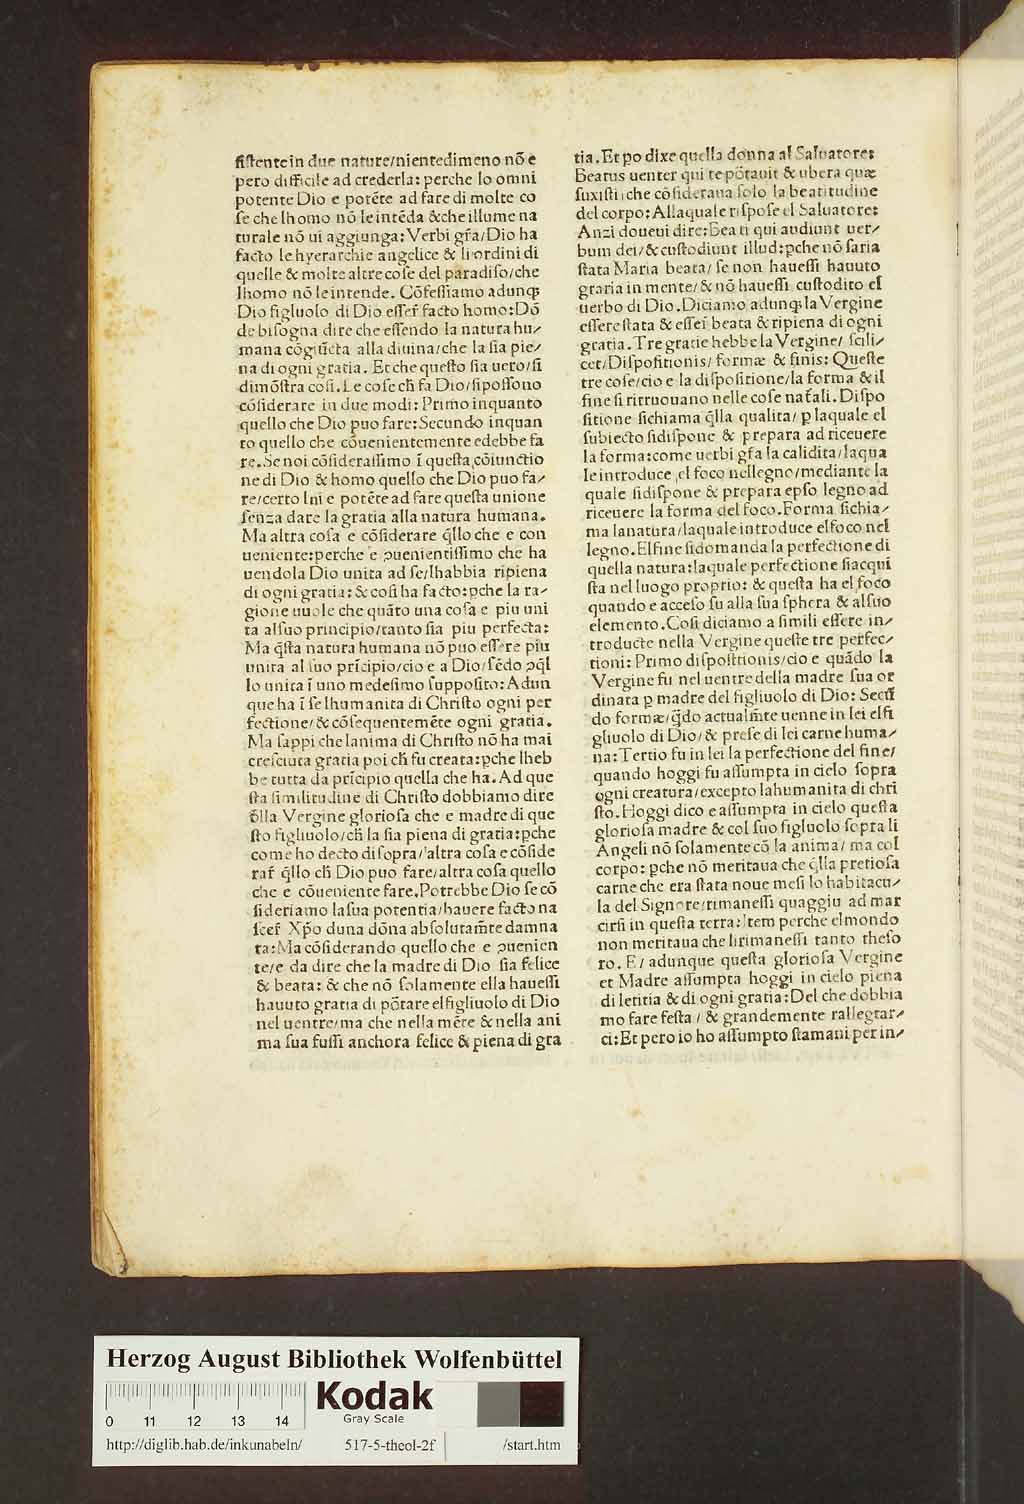 ſiſtente in due nature/nientedimeno nõ e
pero difficile ad crederla: perche lo omni
potente Dio e potẽte ad fare di molte co
ſe che lhomo nõ le intẽda & che illume na
turale nõ ui aggiunga: Verbi gr̃a/Dio ha
facto le hyerarchie angelice & li ordini di
quelle & molte altre coſe del paradiſo/che
lhomo nõ le intende. Cõfeſſiamo adunq;
Dio figluolo di Dio eſſer̃ facto homo: Dõ
de biſogna dire che eſſendo la natura hu/
mana cõgiũcta alla diuina/che la ſia pie/
na di ogni gratia. Et che queſto ſia uero/ſi
dimõſtra coſi. Le coſe ch̃ fa Dio/ſi poſſono
cõſiderare in due modi: Primo inquanto
quello che Dio puo fare: Secundo inquan
to quello che cõuenientemente edebbe fa
re. Se noi cõſideraſſimo ĩ queſta cõiunctio
ne di Dio & homo quello che Dio puo fa/
re/certo lui e potẽte ad fare queſta unione
ſenza dare la gratia alla natura humana.
Ma altra coſa e cõſiderare q̃llo che e con
ueniente: perche e ꝓuenientiſſimo che ha
uendola Dio unita ad ſe/lhabbia ripiena
di ogni gratia: & coſi ha facto: pche la ra/
gione uuole che quãto una coſa e piu uni
ta alſuo principio/tanto ſia piu perfecta:
Ma q̃ſta natura humana nõ puo eſſere piu
unita al ſuo prĩcipio/cio e a Dio/ſẽdo ꝓq̃l
lo unita ĩ uno medeſimo ſuppoſito: Adun
que ha ĩ ſe lhumanita di Chriſto ogni per
fectione/& cõſequentemẽte ogni gratia.
Ma ſappi che lanima di Chriſto nõ ha mai
creſciuta gratia poi ch̃ fu creata: pche lheb
be tutta da prĩcipio quella che ha. Ad que
ſta ſimilitudine di Chriſto dobbiamo dire
d̃lla Vergine glorioſa che e madre di que
ſto figluolo/ch̃ la ſia piena di gratia: pche
come ho decto di ſopra/altra coſa e cõſide
rar̃ q̃llo ch̃ Dio puo fare/altra coſa quello
che e cõueniente fare. Potrebbe Dio ſe cõ
ſideriamo la ſua potentia/hauere facto na
ſcer̃ Xp̃o duna dõna abſolutam̃te damna
ta: Ma cõſiderando quello che e ꝓuenien
te/e da dire che la madre di Dio ſia felice
& beata: & che nõ ſolamente ella haueſſi
hauuto gratia di põtare el figliuolo di Dio
nel uentre/ma che nella mẽte & nella ani
ma ſua fuſſi anchora felice & piena di gra
tia. Et po dixe quella donna al Saluatore:
Beatus uenter qui te põtauit & ubera quæ
ſuxiſti: che cõſideraua ſolo la beatitudine
del corpo: Alla quale riſpoſe el Saluatore:
Anzi doueui dire: Beati qui audiunt uer/
bum dei/& cuſtodiunt illud: pche nõ ſaria
ſtata Maria beata/ſe non haueſſi hauuto
gratia in mente/& nõ haueſſi cuſtodito el
uerbo di Dio. Diciamo adunq; la Vergine
eſſere ſtata & eſſer̃ beata & ripiena di ogni
gratia. Tre gratie hebbe la Vergine/ſcili/
cet/Diſpoſitionis/formæ & finis: Queſte
tre coſe/cio e la diſpoſitione/la forma & il
fine ſi ritruouano nelle coſe nat̃ali. Diſpo
ſitione ſichiama q̃lla qualita/ꝑ laquale el
ſubiecto ſidiſpone & prepara ad riceuere
la forma: come uerbi gr̃a la calidita/laqua
le introduce el foco nel legno/mediante la
quale ſidiſpone & prepara epſo legno ad
riceuere la forma del foco. Forma ſichia/
ma la natura/laquale introduce el foco nel
legno. El fine ſi domanda la perfectione di
quella natura: laquale perfectione ſi acqui
ſta nel luogo proprio: & queſta ha el foco
quando e acceſo ſu alla ſua ſphera & al ſuo
elemento. Coſi diciamo a ſimili eſſere in/
troducte nella Vergine queſte tre perfec/
tioni: Primo diſpoſitionis/cio e quãdo la
Vergine fu nel uentre della madre ſua or
dinata ꝑ madre del figliuolo di Dio: Secũ
do formæ/q̃do actualm̃te uenne in lei el fi
gliuolo di Dio/& preſe di lei carne huma/
na: Tertio fu in lei la perfectione del fine/
quando hoggi fu aſſumpta in cielo ſopra
ogni creatura/excepto lahumanita di chri
ſto. Hoggi dico e aſſumpta in cielo queſta
glorioſa madre & col ſuo figluolo ſopra li
Angeli nõ ſolamente cõ la anima/ma col
corpo: pche nõ meritaua che q̃lla pretioſa
carne che era ſtata noue meſi lo habitacu/
la del Signore/rimaneſſi quaggiu ad mar
cirſi in queſta terra: Item perche el mondo
non meritaua che li rimaneſſi tanto theſo
ro. E/adunque queſta glorioſa Vergine
et Madre aſſumpta hoggi in cielo piena
di letitia & di ogni gratia: Del che dobbia
mo fare feſta/& grandemente rallegrar/
ci: Et pero io ho aſſumpto ſtamani per in/
Herzog August Bibliothek Wolfenbüttel
Kodak
Gray Scale
0 11 12 13 14
http://diglib.hab.de/inkunabeln/ 517-5-theol-2f /start.htm